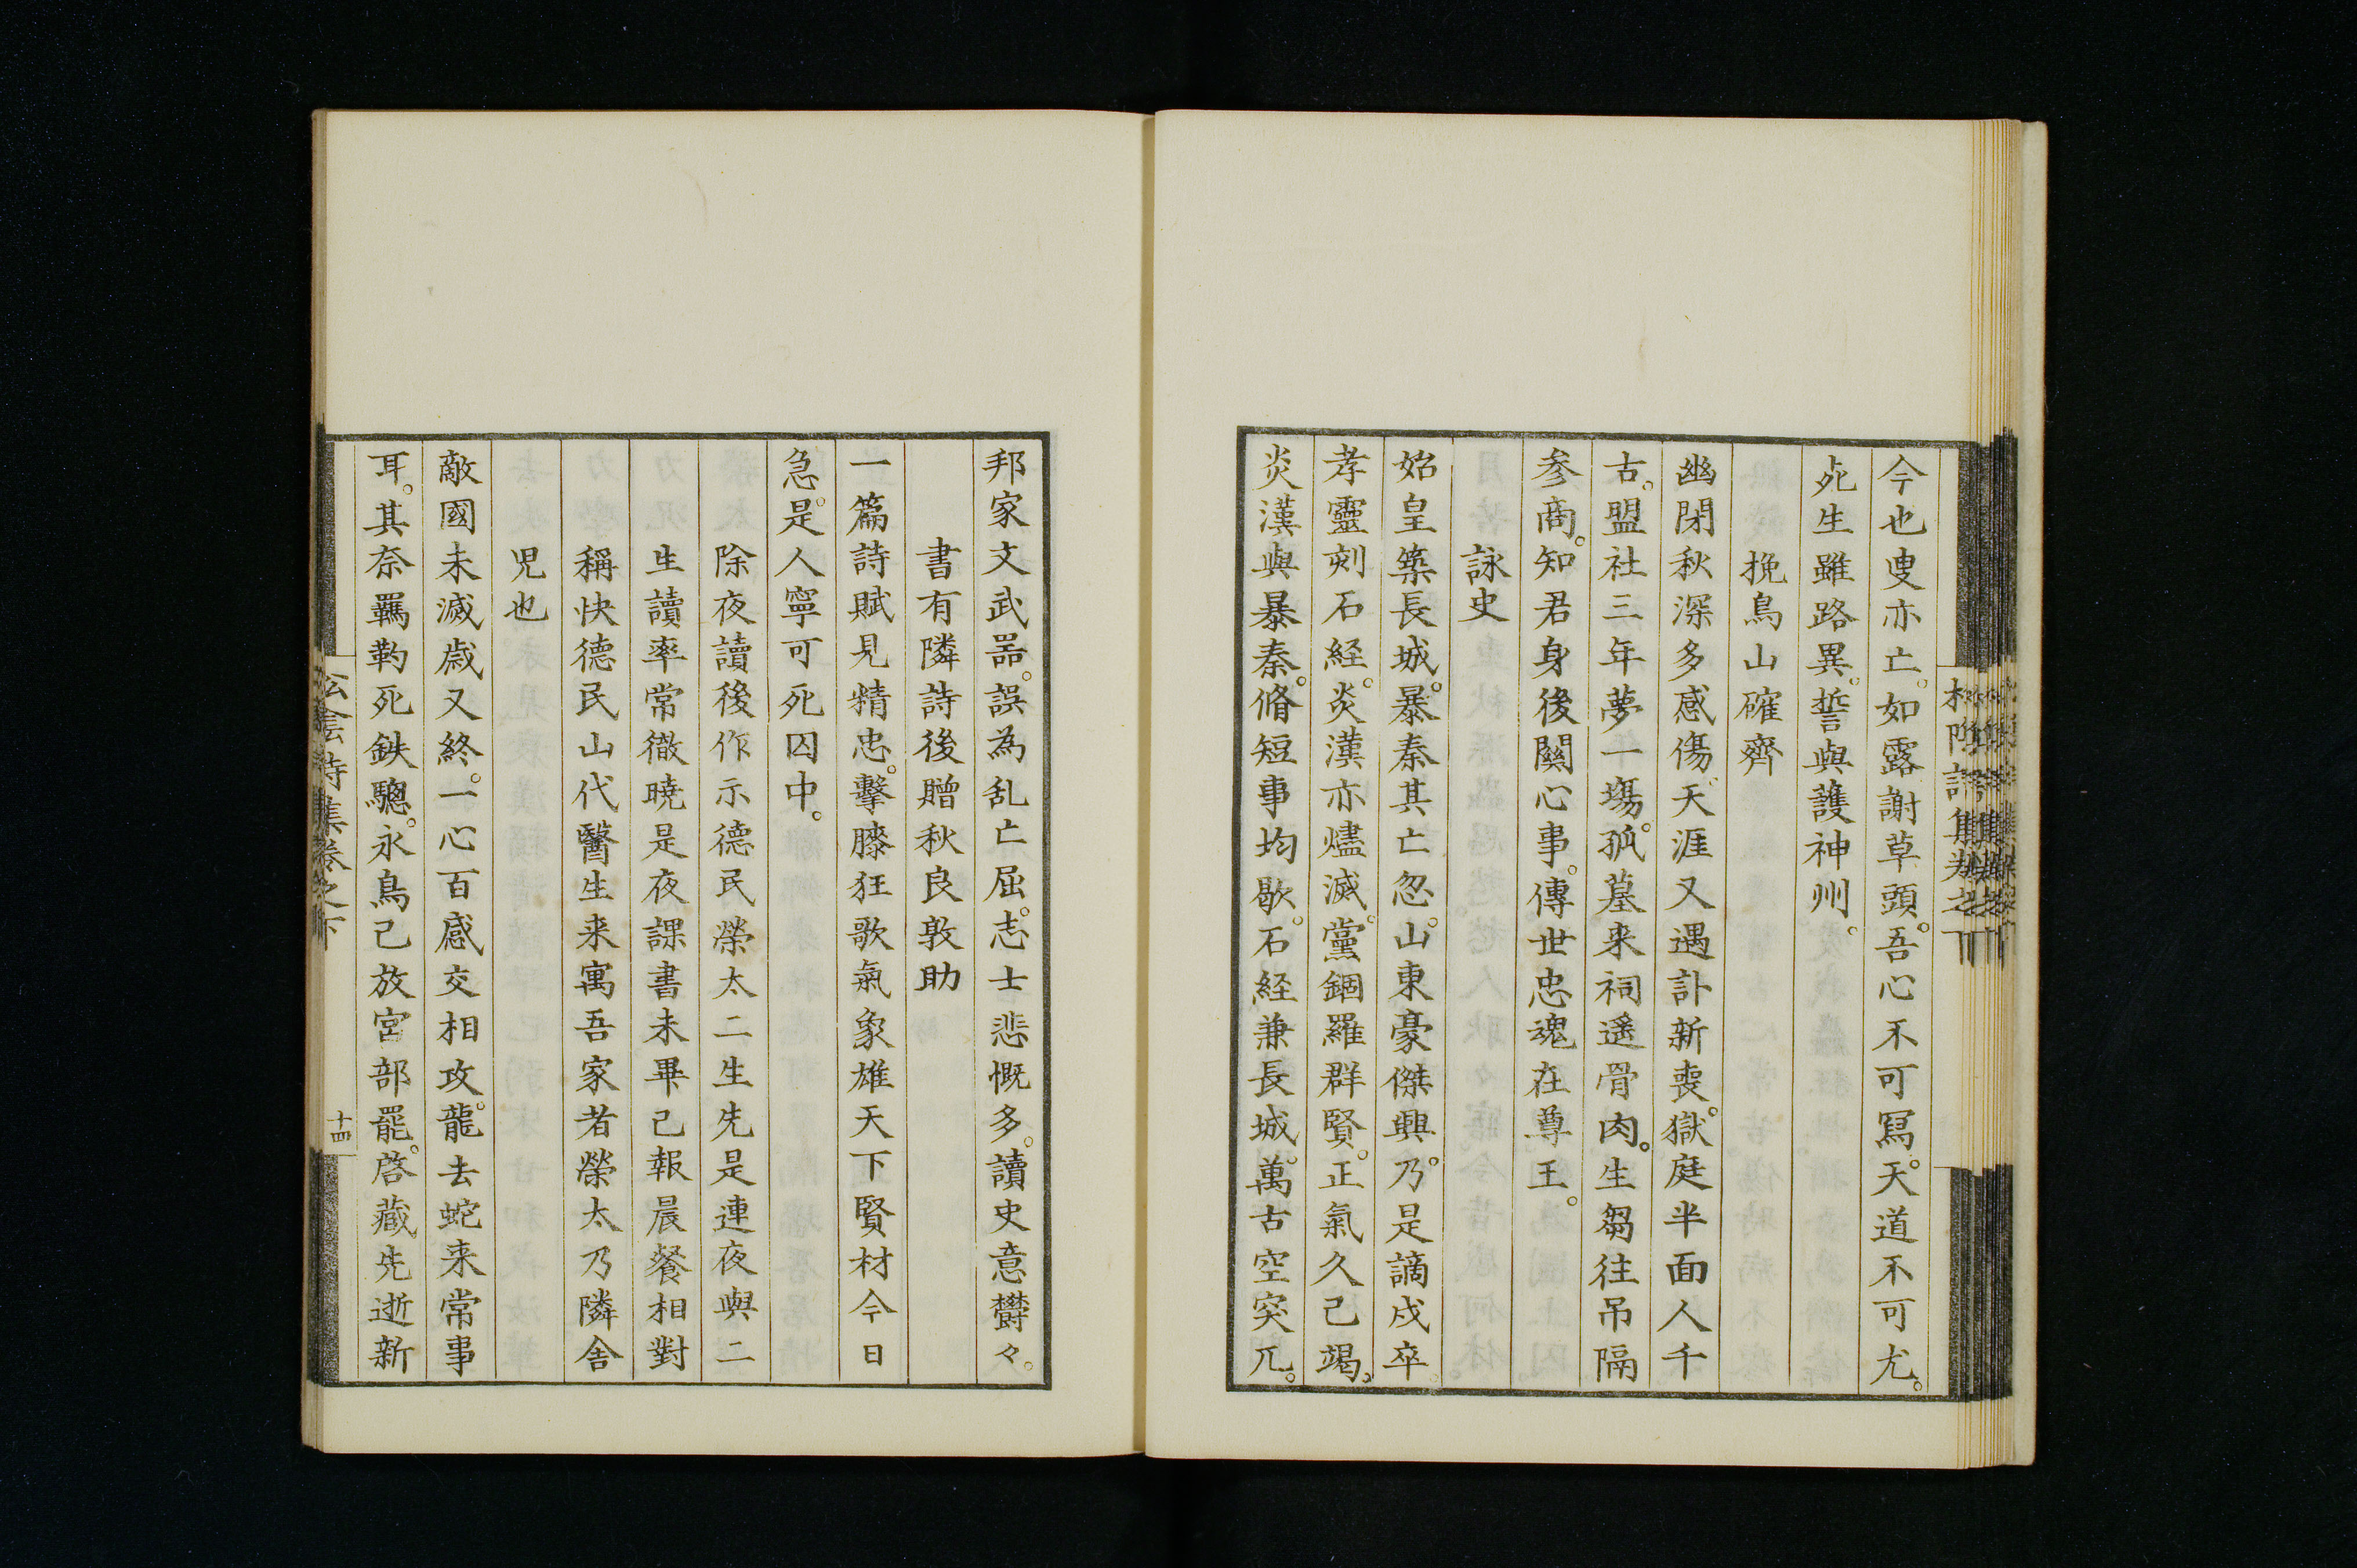 今也叟亦亡。如露謝草頭。吾心不可冩。天道不可尤。
死生雖路異。誓與護神州。
挽鳥山確齊
幽閉秋深多感傷。天涯又遇訃新喪。獄庭半面人千
古。盟社三年夢一塲。孤墓来祠遙骨肉。生芻往吊隔
参商。知君身後關心事。傳世忠魂在尊王。
詠史
始皇築長城。暴秦其亡忽。山東豪傑興。乃是謫戍卒。
孝靈刻石経。炎漢亦燼滅。黨錮羅群賢。正氣久已竭。
炎漢與暴秦。脩短事均歇。石経兼長城。萬古空突兀。
邦家文武噐。誤為乱亡屈。志士悲慨多。讀史意欝々。
書有隣詩後贈秋良敦助
一篇詩賦見精忠。擊膝狂歌氣象雄天下賢材今日
急。是人寧可死囚中。
除夜讀後作示德民榮太二生先是連夜與二
生讀率常徹曉是夜課書未畢己報晨餐相對
稱快德民山代醫生来寓吾家者榮太乃隣舎
児也
敵國未滅歳又終。一心百感交相攻。龍去蛇来常事
耳。其奈羈靮死鉄驄。永鳥己放宮部罷。啓蔵先逝新
松陰詩集卷之下
十四